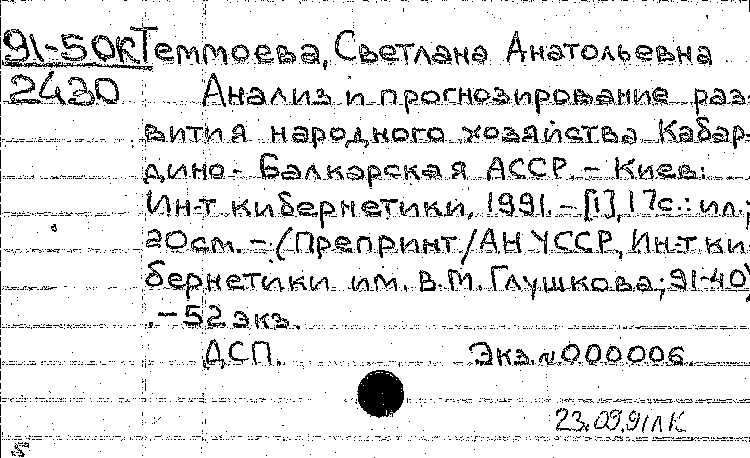 91-50К Теммоева, Светлана Анатольевна
2430 Анализ и прогнозирование раз-
вития народного хозяйства Кабар-
дино-Балкарская АССР. – Киев:
Ин-т кибернетики, 1991. – [1], 17с.: ил.;
20см. – (Препринт/АН УССР, Ин-т ки-
бернетики им. В.М. Глушкова; 91-40)
. – 52 экз.
ДСП. Экз. № 000006.
23.09.91 ЛК